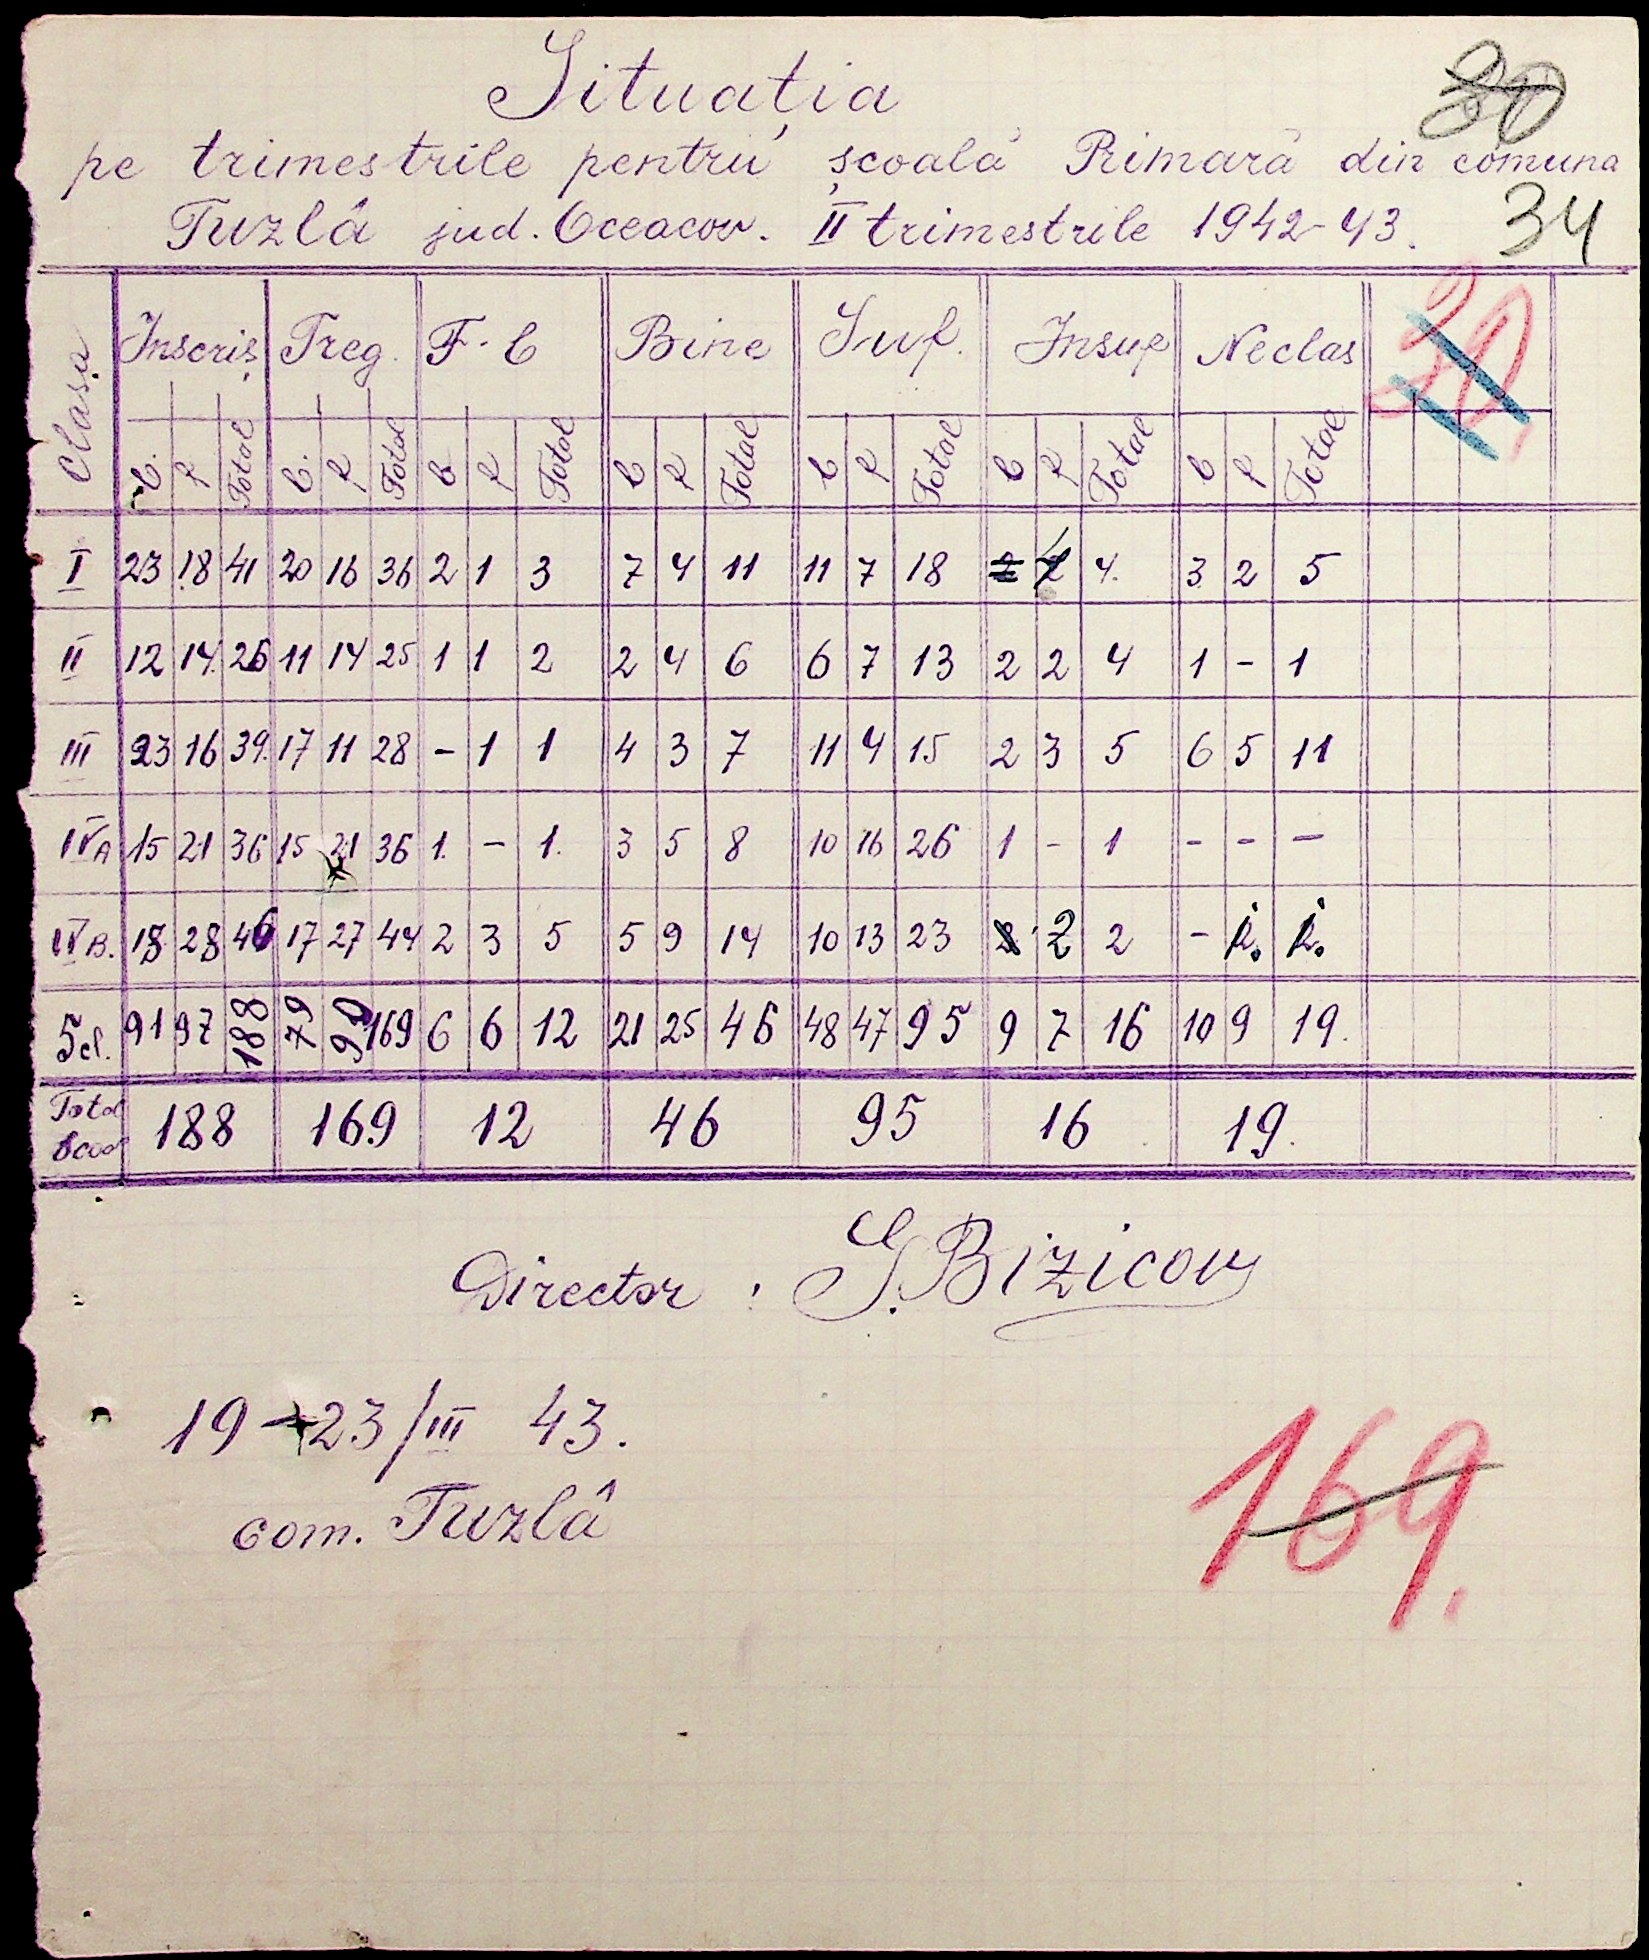 Situația
30
pe trimestrile pentru școală Primară din comuna
Tuzlâ jud. Oceacov. II trimestrile 1942-43.
34
Clasa Inscriș Freg. F. B Bine Suf. Insuf Neclas
30
B. F Total B. F Total B F Total B F Total B F Total B F Total B F Total
I 23 18 41 20 16 36 2 1 3 7 4 11 11 7 18 4. 3 2 5
II 12 14. 26 11 14 25 1 1 2 2 4 6 6 7 13 2 2 4 1 - 1
III 23 16 39. 17 11 28 - 1 1 4 3 7 11 4 15 2 3 5 6 5 11
IVA 15 21 36 15 21 36 1. - 1. 3 5 8 10 16 26 1 - 1 - - -
IVB. 18 28 46 17 27 44 2 3 5 5 9 14 10 13 23 2 2 - 2. 2.
5cl. 91 97 188 79 90 169 6 6 12 21 25 46 48 47 95 9 7 16 10 9 19.
Total Scoa 188 169 12 46 95 16 19.
Director : S. Bizicov
19-23/III 43.
com. Tuzlâ
169.